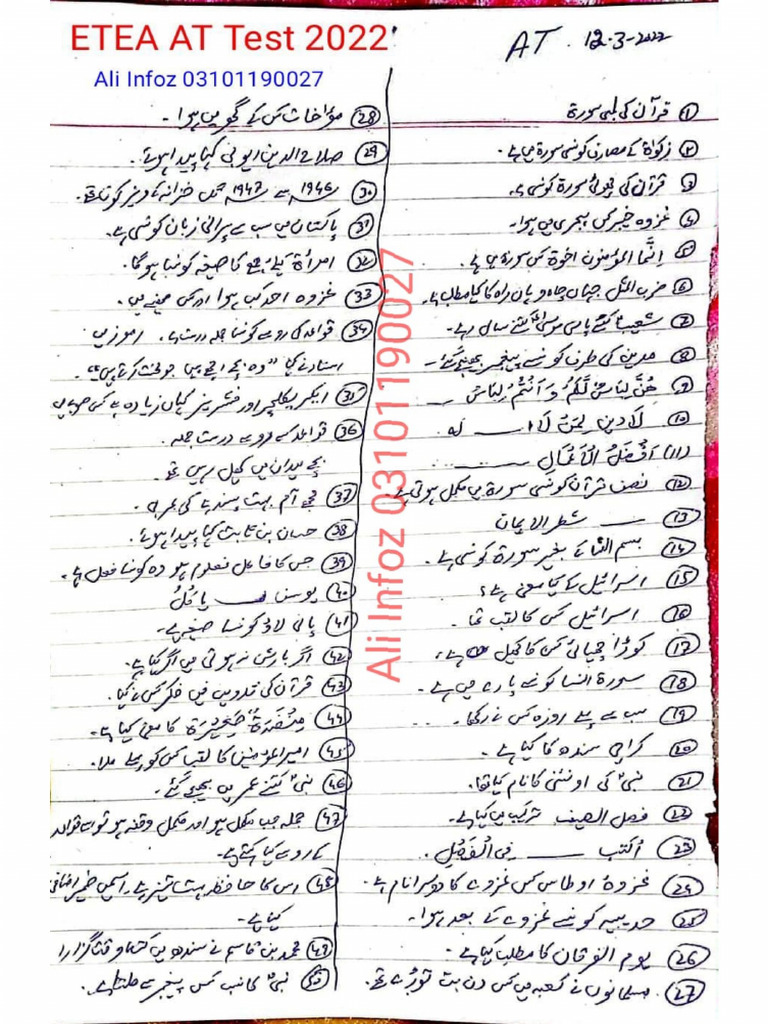 ETEA AT Test 2022
Ali Infoz 03101190027
AT . 12-3-2022
① قرآن کی پہلی سورۃ
② زکوٰۃ کے مصارف کونسی سورۃ میں ہے۔
③ قرآن کی چھوٹی سورۃ کونسی ہے
④ غزوہ خیبر کس ہجری میں ہوا۔
⑤ اِنَّمَا المؤمنون اخوۃ کس سورۃ میں ہے۔
⑥ ضرب المثل جہاں چاہ وہاں راہ کا کیا مطلب ہے۔
⑦ شعیبؑ کے پاس موسیٰؑ کتنے سال رہے۔
⑧ مدین کی طرف کونسے پیغمبر بھیجے گئے۔
⑨ ھُنَّ لِبَاسٌ لَّکُمْ وَ اَنْتُمْ لِبَاسٌ ــــ
⑩ لَا دِینَ لِمَنْ لَا ــــ لہ
(11) اَفْضَلُ الْاَعْمَالِ ــــ ....
⑫ نصف قرآن کونسی سورۃ میں مکمل ہوتی ہے۔
⑬ ــــ شطر الایمان
⑭ بسم اللہ کے بغیر سورۃ کونسی ہے۔
⑮ اسرائیل کا کیا معنی ہے؟
⑯ اسرائیل کس کا لقب تھا۔
⑰ کوڑا چھپائی کس کا کھیل ہے۔
⑱ سورۃ النسا کونسے پارے میں ہے۔
⑲ سب سے پہلے روزہ کس نے رکھا۔
⑳ کراچی سندھ کا کیا ہے۔
㉑ نبیؐ کی اونٹنی کا نام کیا تھا۔
㉒ فصل الصیف ترکیب میں کیا ہے۔
㉓ اُکتب ــــ فِی الْفَصْلِ.
㉔ غزوۂ اوطاس کس غزوے کا دوسرا نام ہے۔
㉕ حدیبیہ کونسے غزوے کے بعد ہوا۔
㉖ یوم الفرقان کا مطلب کیا ہے۔
㉗ مسلمانوں نے کعبہ میں کس دن بت توڑے تھے۔
㉘ مؤاخات کس کے گھر میں ہوا۔
㉙ صلاح الدین ایوبی کہاں پیدا ہوئے۔
㉚ 1946 سے 1947 تک خزانہ کے وزیر کون تھے۔
㉛ پاکستان میں سب سے پرانی زبان کونسی ہے۔
㉜ امراۃ کیلئے جمع کا صیغہ کونسا ہوگا۔
㉝ غزوہ احد کب ہوا اور کس مہینے میں۔
㉞ قواعد کی رو سے کونسا جملہ درست ہے۔ رموز میں
استاد نے کہا "وہ بچے اچھے ہیں جو محنت کرتے ہیں"۔
㉟ ایگریکلچر اور فشریز کہاں زیادہ ہے کس صوبے میں
㊱ قواعد کے رو سے درست جملہ۔
بچے میدان میں کھیل رہے تھے۔
㊲ مجھے آم بہت پسند ہے کی عربی۔
㊳ حسان بن ثابت کہاں پیدا ہوئے۔
㊴ جس کا فاعل معلوم ہو وہ کونسا فعل ہے۔
㊵ یوسف ــــ یاکُلُ
㊶ پانی لاؤ کونسا صیغہ ہے۔
㊷ اگر بارش نہ ہوتی میں اگر کیا ہے۔
㊸ قرآن کی تدوین میں فکر کس نے کیا۔
㊹ مِنْضَدَۃٌ صَغِیْرَۃ کا معنی کیا ہے۔
㊺ امیر المؤمنین کا لقب کس کو پہلے ملا۔
㊻ نبیؐ کتنے عمر میں بھیجے گئے۔
㊼ جملہ جب مکمل ہو اور مکمل وقفہ ہو تو قواعد
کے رو سے کیا کہتے ہے۔
㊽ اس کا حافظہ بہت تیز ہے، اسمیں ضمیر اضافی
کیا ہے۔
㊾ محمد بن قاسم نے سندھ میں کتنا وقت گزارا
㊿ نبیؐ کا نسب کس پیغمبر سے ملتا ہے۔
Ali Infoz 03101190027